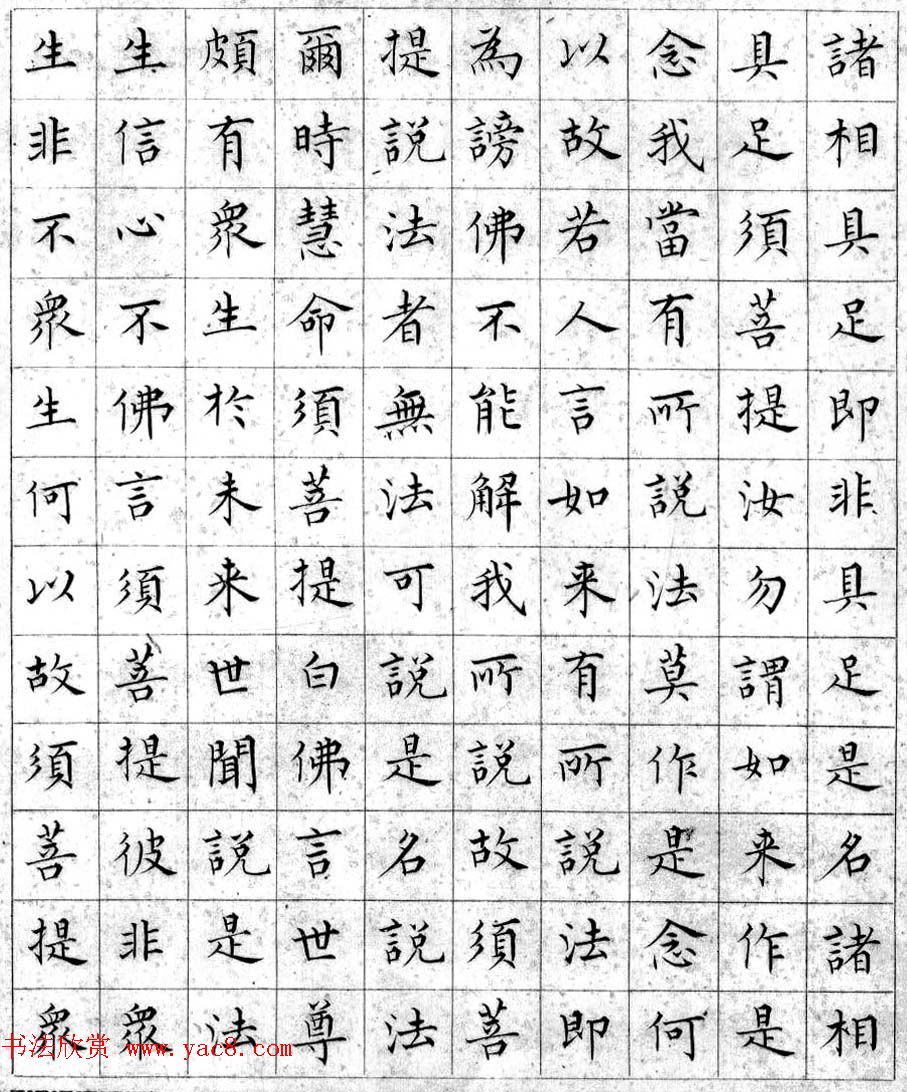 諸相具足即非具足是名諸相
具足須菩提汝勿謂如来作是
念我當有所説法莫作是念何
以故若人言如来有所説法即
為謗佛不能解我所説故須菩
提説法者無法可説是名説法
爾時慧命須菩提白佛言世尊
頗有衆生於未来世聞説是法
生信心不佛言須菩提彼非衆
生非不衆生何以故須菩提衆
书法欣赏 www.yac8.com